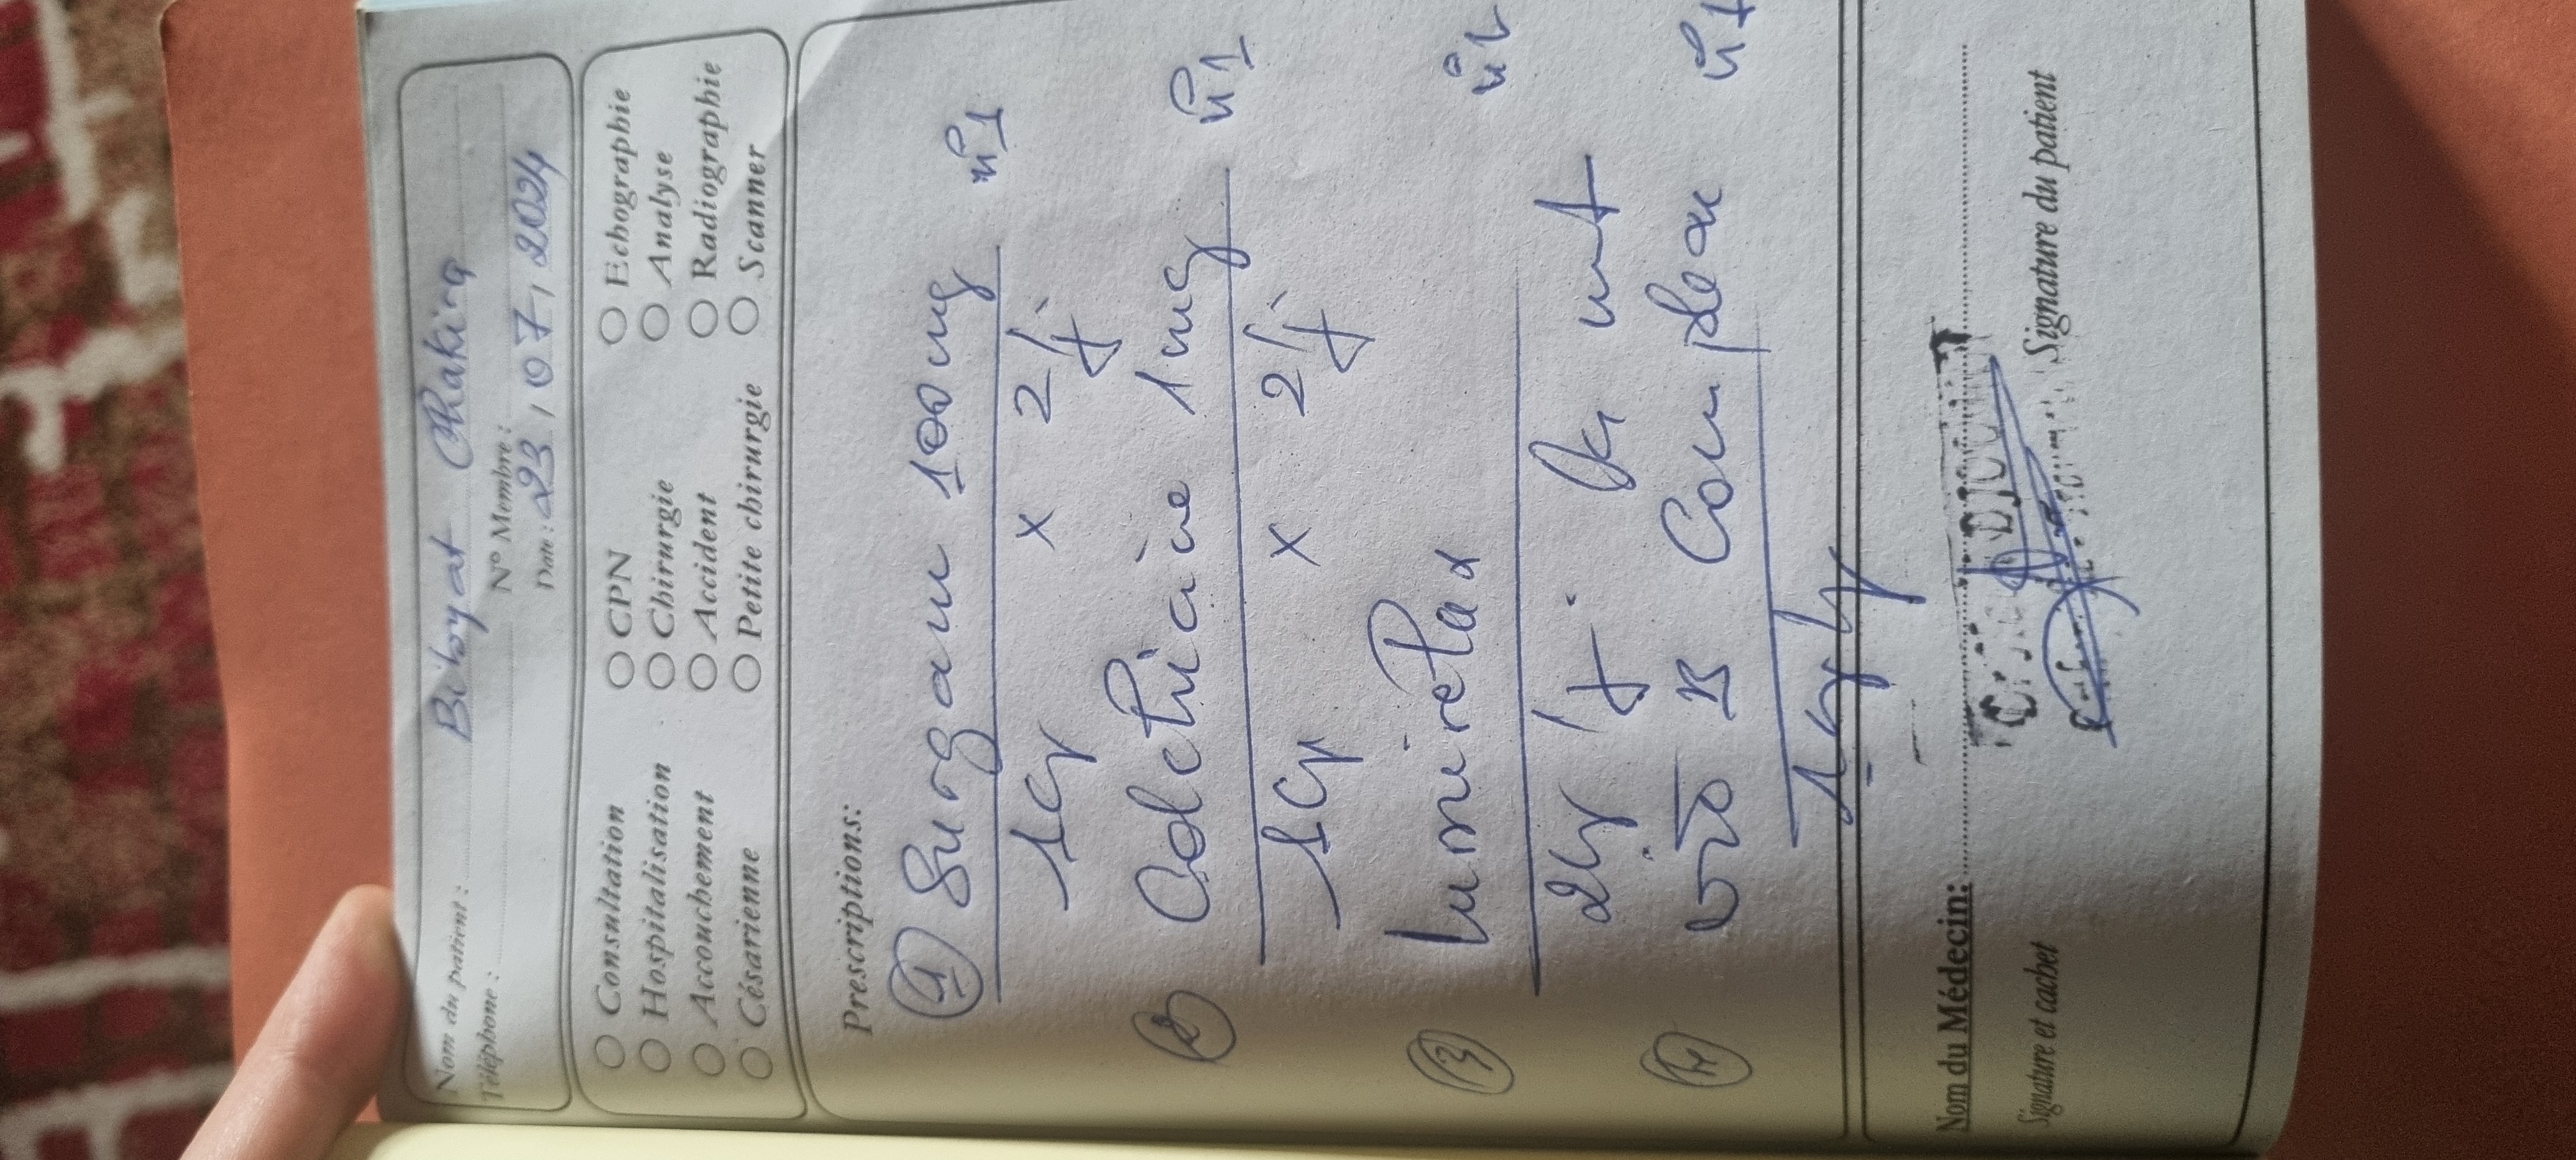 Nom du patient : Bibyat Chakira
Téléphone : N° Membre :
Date : 23, 07, 2024
Consultation CPN Echographie
Hospitalisation Chirurgie Analyse
Accouchement Accident Radiographie
Césarienne Petite chirurgie Scanner
Prescriptions:
1 Surgam 100mg n°1
1cp x 2/j
2 Colchicine 1mg n°1
1cp x 2/j
3 Lumirelax n°1
2cp/j
4 B Complex n°1
Nom du Médecin:
Signature et cachet Signature du patient